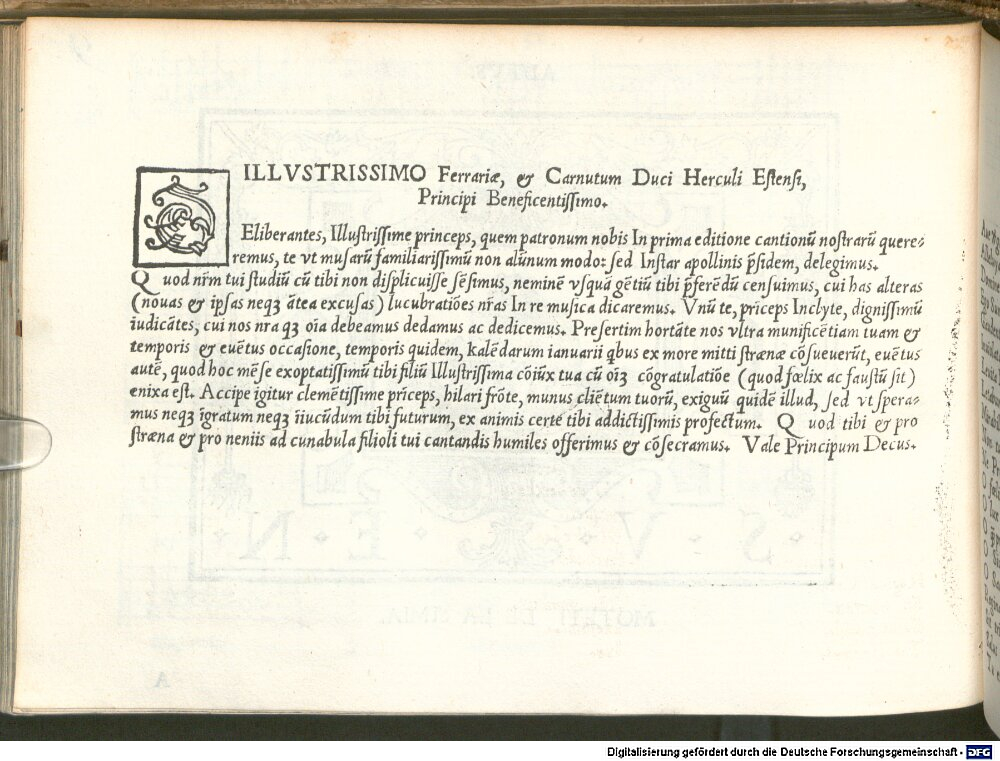 ILLVSTRISSIMO Ferrariæ, & Carnutum Duci Herculi Estensi,
Principi Beneficentissimo.
DEliberantes, Illustrissime princeps, quem patronum nobis In prima editione cantionū nostrarū quere-
remus, te vt musarū familiarissimū non alūnum modo: sed Instar apollinis p̄sidem, delegimus.
Quod nr̄m tui studiū cū tibi non displicuisse sēsimus, neminē vsquā gētiū tibi p̄ferēdū censuimus, cui has alteras
(nouas & ipsas neqꝫ ātea excusas) lucubratiōes nr̄as In re musica dicaremus. Vnū te, prīceps Inclyte, dignissimū
iudicātes, cui nos nra qꝫ oīa debeamus dedamus ac dedicemus. Presertim hortāte nos vltra munificētiam tuam &
temporis & euētus occasione, temporis quidem, kalēdarum ianuarii qbus ex more mitti strænæ cōsueuerūt, euētus
autē, quod hoc mēse exoptatissimū tibi filiū Illustrissima cōiūx tua cū oīꝫ cōgratulatiōe (quod fœlix ac faustū sit)
enixa est. Accipe igitur clemētissime prīceps, hilari frōte, munus cliētum tuorū, exiguū quidē illud, sed vt spera-
mus neqꝫ īgratum neqꝫ īiucūdum tibi futurum, ex animis certe tibi addictissimis profectum. Quod tibi & pro
stræna & pro neniis ad cunabula filioli tui cantandis humiles offerimus & cōsecramus. Vale Principum Decus.
Digitalisierung gefördert durch die Deutsche Forschungsgemeinschaft - DFG